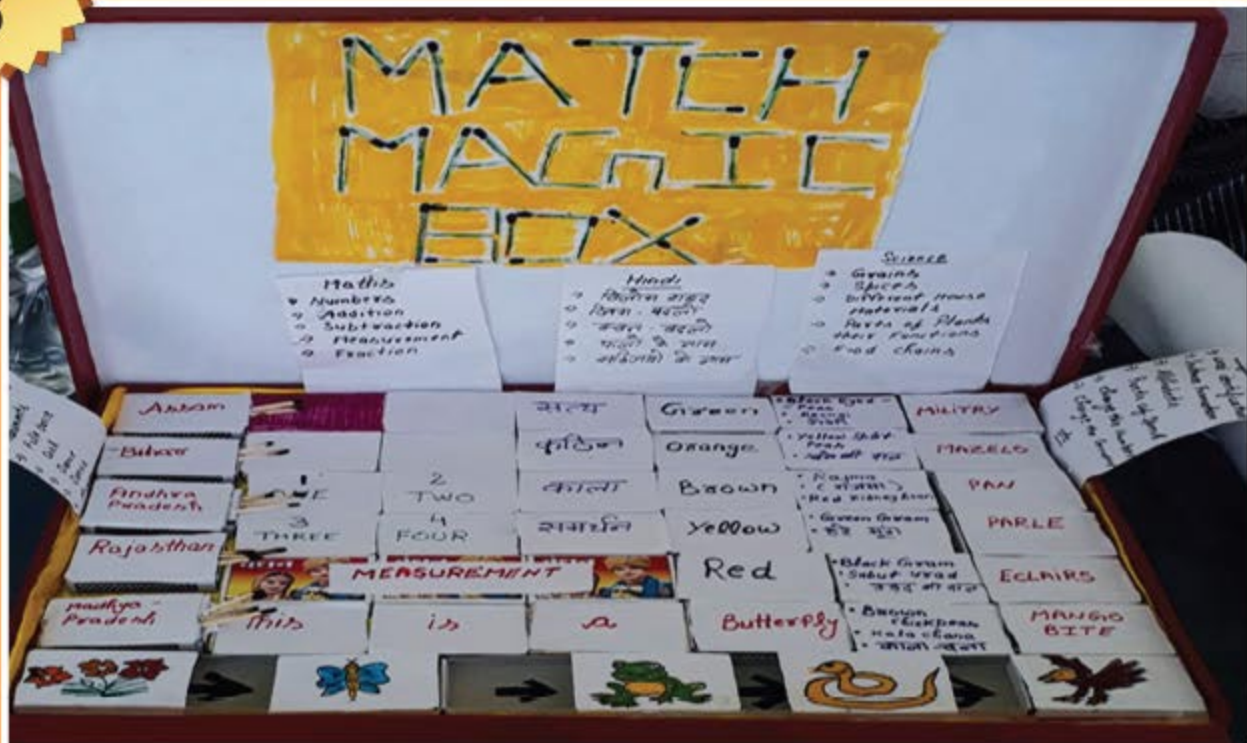 MATCH
MAGIC
BOX
Maths
Numbers
Addition
Subtraction
Measurement
Fraction
Hindi
Science
Grains
Spices
Different House
Materials
Parts of Plants
their Functions
Food chains
Assam
Bihar
Andhra
Pradesh
Rajasthan
Madhya
Pradesh
1
ONE
2
TWO
3
THREE
4
FOUR
MEASUREMENT
This is a Butterfly
सत्य
कठिन
काला
समर्थन
Green
Orange
Brown
Yellow
Red
Black Eyed
Peas
Yellow Split
Peas
Rajma
(राजमा)
Red Kidney bean
Green Gram
हरे मूंग
Black Gram
Sabut Urad
Brown
chickpeas
Kala chana
काला चना
MILITRY
MAZELO
PAN
PARLE
ECLAIRS
MANGO
BITE